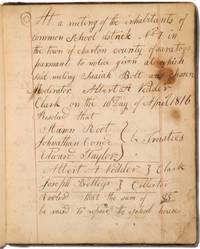 At a meeting of the inhabitants of
common School district No 7 in
the town of charlton county of saratoga
persuant to notice given at which
said meting Josiah Bett was chosen
Moderator Albert A Vedder
Clark on the 10 Day of April 1816
Resolvd that
Maron Root
Johnathan Conde } be Trustees
Edward Taylor
Albert A Vedder } Clark
Joseph Bettegs } Collector
Voted that the sum of $5
be raised to repair the school house